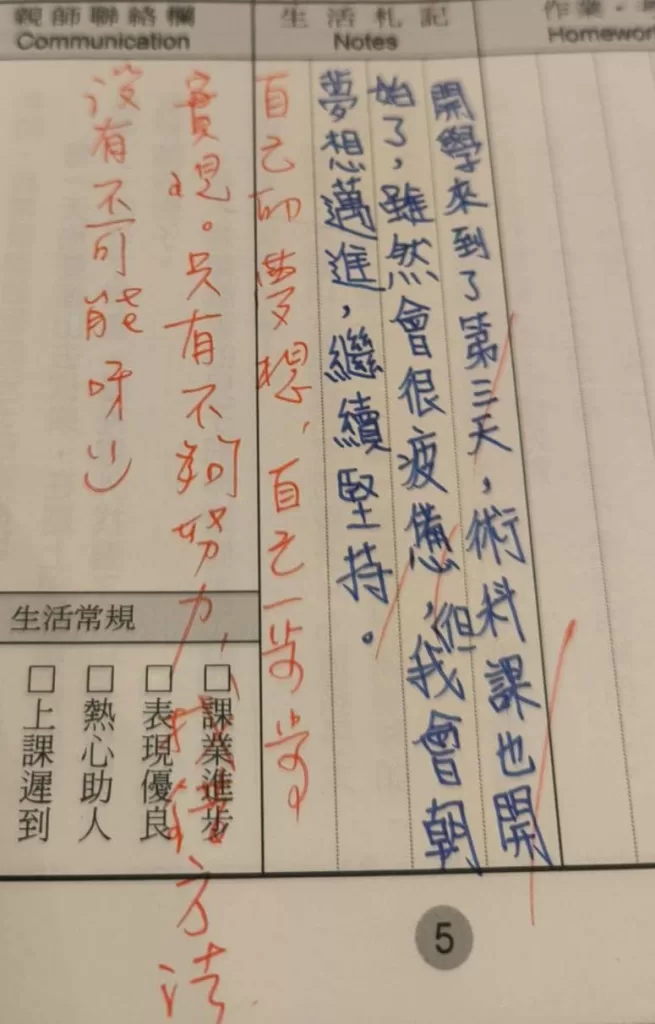 作業．
Homewor
生活札記
Notes
親師聯絡欄
Communication
開學來到了第三天，術科課也開
始了，雖然會很疲憊，但我會朝
夢想邁進，繼續堅持。
自己的夢想，自己一步步
實現。只有不夠努力，找對方法
沒有不可能呀
生活常規
□課業進步
□表現優良
□熱心助人
□上課遲到
5